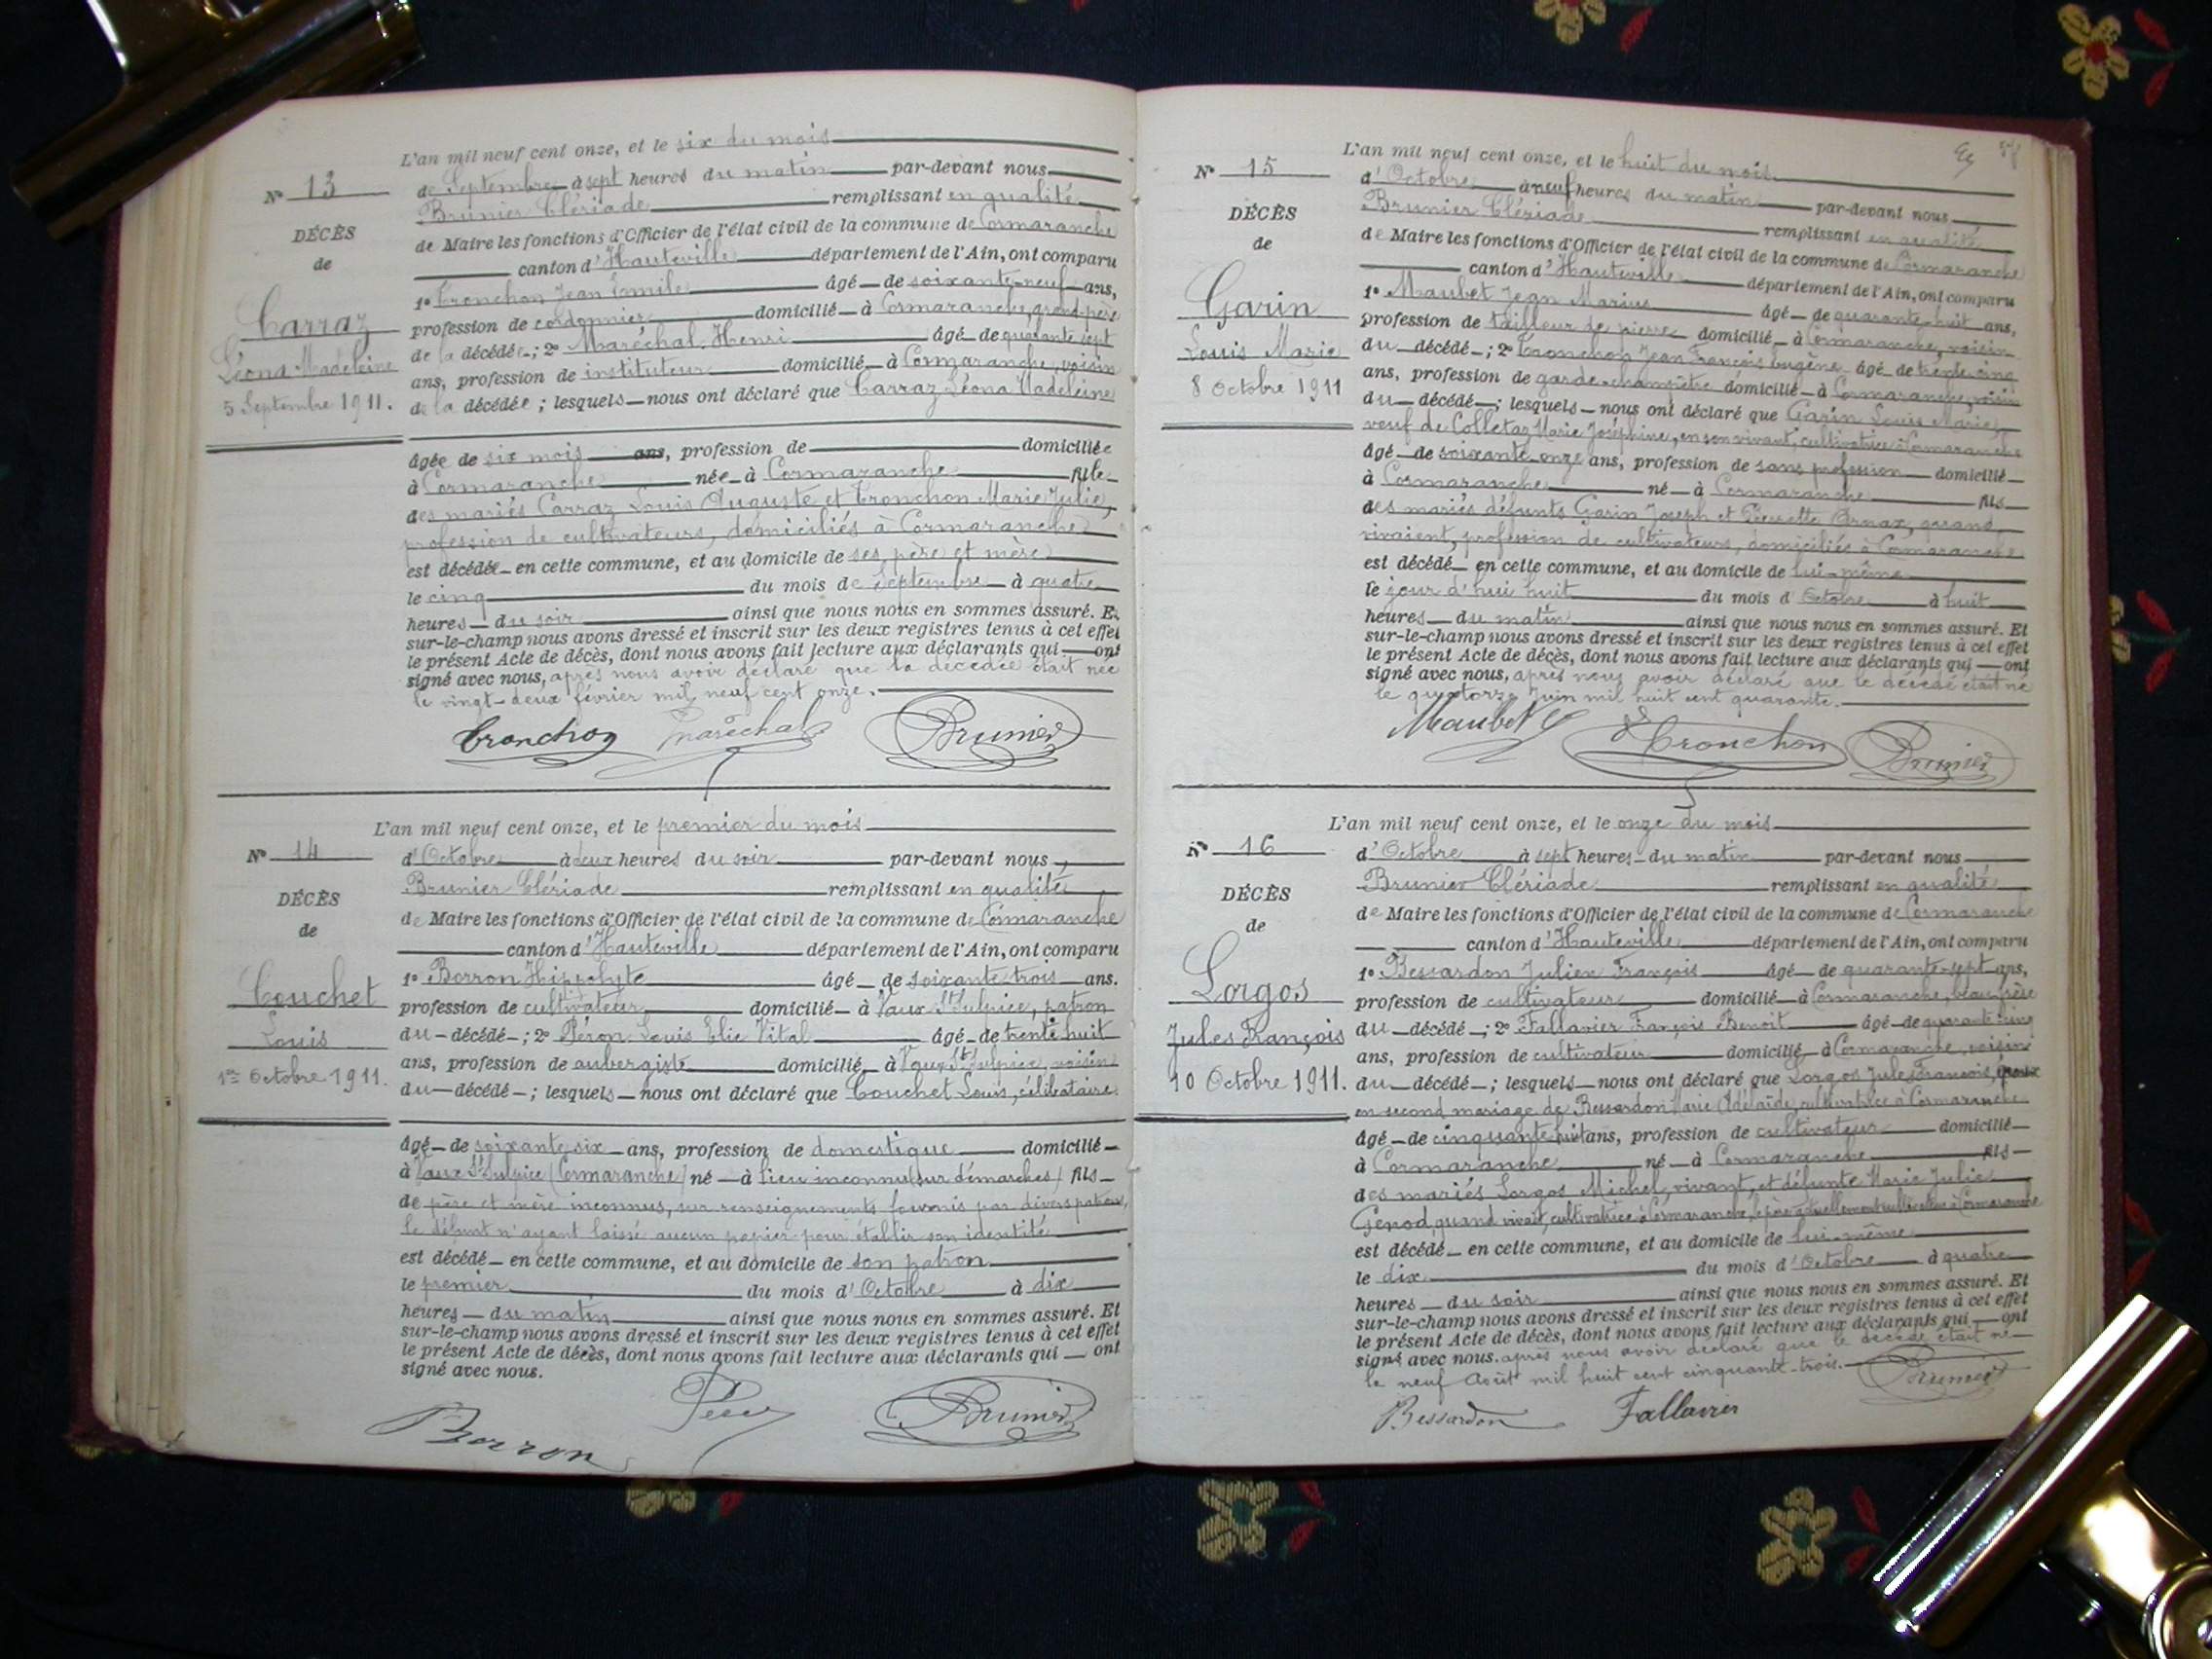 L'an mil neuf cent onze, et le six du mois
Nº 13
de Septembre à sept heures du matin par-devant nous
Brunier Clériade remplissant en qualité
DÉCÈS
de Maire les fonctions d'Officier de l'état civil de la commune de Cormaranche
de
canton d'Hauteville département de l'Ain, ont comparu
1º Tronchon Jean Emile âgé de soixante-neuf ans,
Carraz
profession de cordonnier domicilié à Cormaranche, grand-père
de la décédée; 2º Maréchal Henri âgé de quarante sept
Léona Madeleine
ans, profession de instituteur domicilié à Cormaranche, voisin
5 Septembre 1911.
de la décédée; lesquels nous ont déclaré que Carraz Léona Madeleine
âgée de six mois ans, profession de domiciliée
à Cormaranche née à Cormaranche fille
des mariés Carraz Louis Auguste et Tronchon Marie Julie,
profession de cultivateurs, domiciliés à Cormaranche
est décédée en cette commune, et au domicile de ses père et mère
le cinq du mois de Septembre à quatre
heures du soir ainsi que nous nous en sommes assuré. Et
sur-le-champ nous avons dressé et inscrit sur les deux registres tenus à cet effet
le présent Acte de décès, dont nous avons fait lecture aux déclarants qui ont
signé avec nous, après nous avoir déclaré que la décédée était née
le vingt-deux février mil neuf cent onze.
Tronchon Maréchal Brunier
L'an mil neuf cent onze, et le premier du mois
Nº 14
d'Octobre à deux heures du soir par-devant nous
Brunier Clériade remplissant en qualité
DÉCÈS
de Maire les fonctions d'Officier de l'état civil de la commune de Cormaranche
de
canton d'Hauteville département de l'Ain, ont comparu
1º Borron Hippolyte âgé de soixante-trois ans.
Couchet
profession de cultivateur domicilié à Vaux St Sulpice, patron
Louis
du décédé; 2º Péron Louis Elie Vital âgé de trente huit
ans, profession de aubergiste domicilié à Vaux St Sulpice, voisin
1er Octobre 1911.
du décédé; lesquels nous ont déclaré que Couchet Louis, célibataire.
âgé de soixante six ans, profession de domestique domicilié
à Vaux St Sulpice (Cormaranche) né à lieu inconnu (sur démarches) fils
de père et mère inconnus, sur renseignements fournis par divers patrons,
le défunt n'ayant laissé aucun papier pour établir son identité
est décédé en cette commune, et au domicile de son patron
le premier du mois d'Octobre à dix
heures du matin ainsi que nous nous en sommes assuré. Et
sur-le-champ nous avons dressé et inscrit sur les deux registres tenus à cet effet
le présent Acte de décès, dont nous avons fait lecture aux déclarants qui ont
signé avec nous.
Borron Brunier
L'an mil neuf cent onze, et le huit du mois
Nº 15
d'Octobre à neuf heures du matin par-devant nous
Brunier Clériade remplissant en qualité
DÉCÈS
de Maire les fonctions d'Officier de l'état civil de la commune de Cormaranche
de
canton d'Hauteville département de l'Ain, ont comparu
1º Maubet Jean Marius âgé de quarante-huit ans,
Garin
profession de tailleur de pierre domicilié à Cormaranche, voisin
du décédé; 2º Tronchon Jean François Eugène âgé de trente cinq
Louis Marie
ans, profession de garde-champêtre domicilié à Cormaranche, voisin
8 Octobre 1911
du décédé; lesquels nous ont déclaré que Garin Louis Marie,
veuf de Colletaz Marie Joséphine, en son vivant, cultivatrice à Cormaranche
âgé de soixante-onze ans, profession de sans profession domicilié
à Cormaranche né à Cormaranche fils
des mariés défunts Garin Joseph et Pierrette Ornax, quand
vivaient, profession de cultivateurs, domiciliés à Cormaranche
est décédé en cette commune, et au domicile de lui-même
le jour d'hui huit du mois d'Octobre à huit
heures du matin ainsi que nous nous en sommes assuré. Et
sur-le-champ nous avons dressé et inscrit sur les deux registres tenus à cet effet
le présent Acte de décès, dont nous avons fait lecture aux déclarants qui ont
signé avec nous, après nous avoir déclaré que le décédé était né
le quatorze Juin mil huit cent quarante.
Maubet Tronchon Brunier
L'an mil neuf cent onze, et le onze du mois
Nº 16
d'Octobre à sept heures du matin par-devant nous
Brunier Clériade remplissant en qualité
DÉCÈS
de Maire les fonctions d'Officier de l'état civil de la commune de Cormaranche
de
canton d'Hauteville département de l'Ain, ont comparu
1º Bessardon Julien François âgé de quarante-sept ans,
Lorgos
profession de cultivateur domicilié à Cormaranche, beau-frère
Jules François
du décédé; 2º Fallavier François Benoit âgé de quarante cinq
ans, profession de cultivateur domicilié à Cormaranche, voisin
10 Octobre 1911.
du décédé; lesquels nous ont déclaré que Lorgos Jules François, époux
en second mariage de Bessardon Marie Adélaïde, cultivatrice à Cormaranche
âgé de cinquante huit ans, profession de cultivateur domicilié
à Cormaranche né à Cormaranche fils
des mariés Lorgos Michel, vivant, et défunte Marie Julie
Genod quand vivait, cultivatrice à Cormaranche, le père actuellement cultivateur à Cormaranche
est décédé en cette commune, et au domicile de lui-même
le dix du mois d'Octobre à quatre
heures du soir ainsi que nous nous en sommes assuré. Et
sur-le-champ nous avons dressé et inscrit sur les deux registres tenus à cet effet
le présent Acte de décès, dont nous avons fait lecture aux déclarants qui ont
signé avec nous. après nous avoir déclaré que le décédé était né
le neuf Août mil huit cent cinquante-trois. Brunier
Bessardon Fallavier